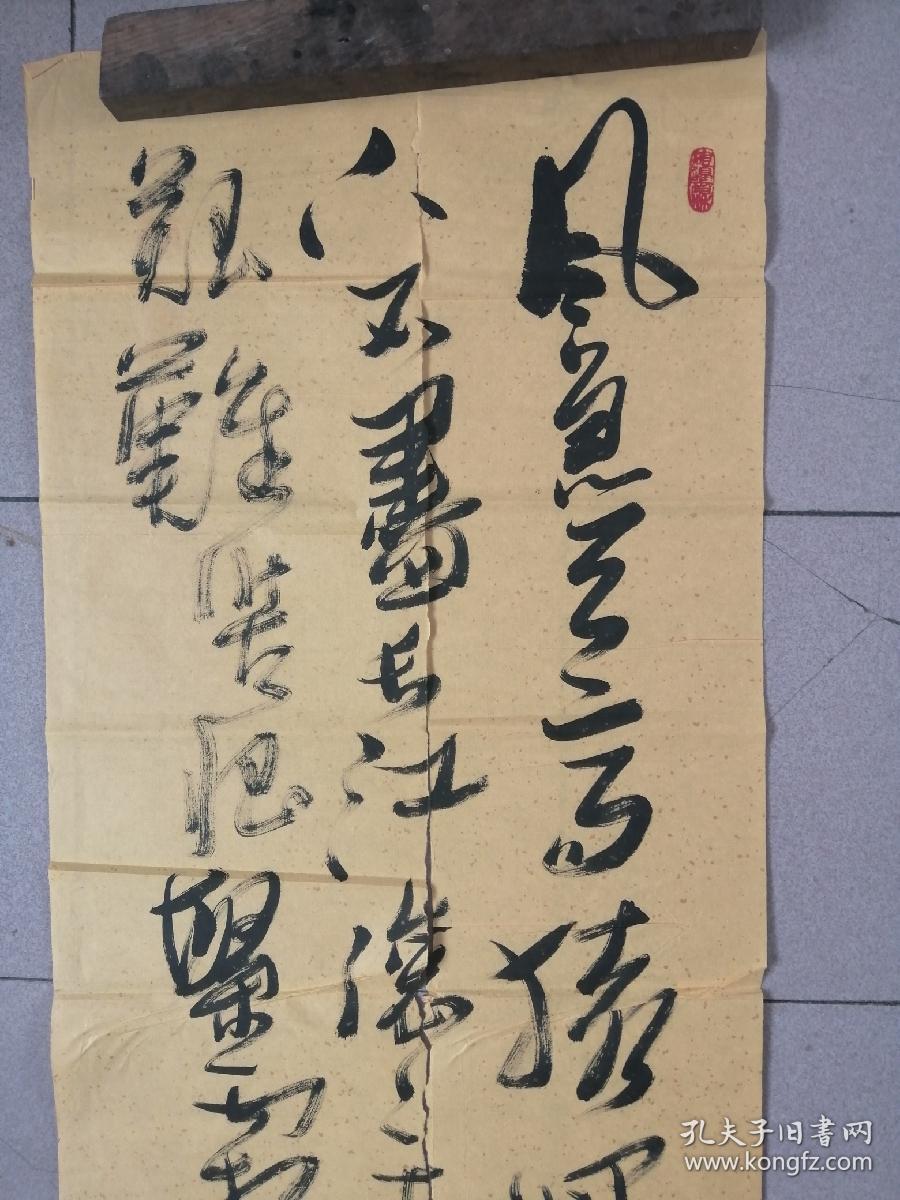 風急天高猿
下不盡長江滾
艱難苦恨繁霜
孔夫子旧书网
www.kongfz.com